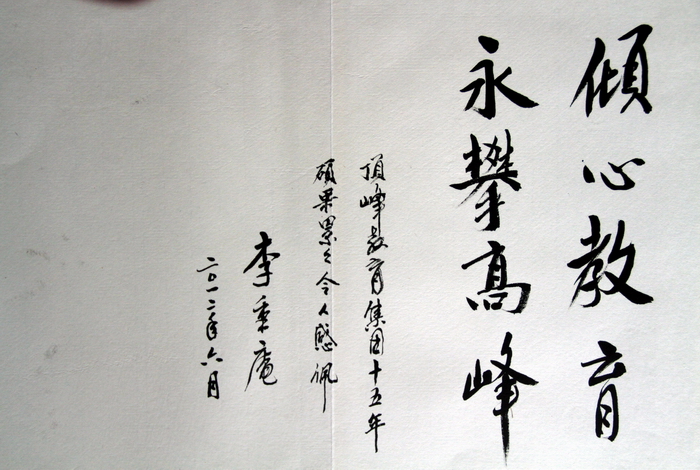 傾心教育
永攀高峰
頂峰教育集团十五年
碩果累々令人感佩
李重庵
二〇一二年六月